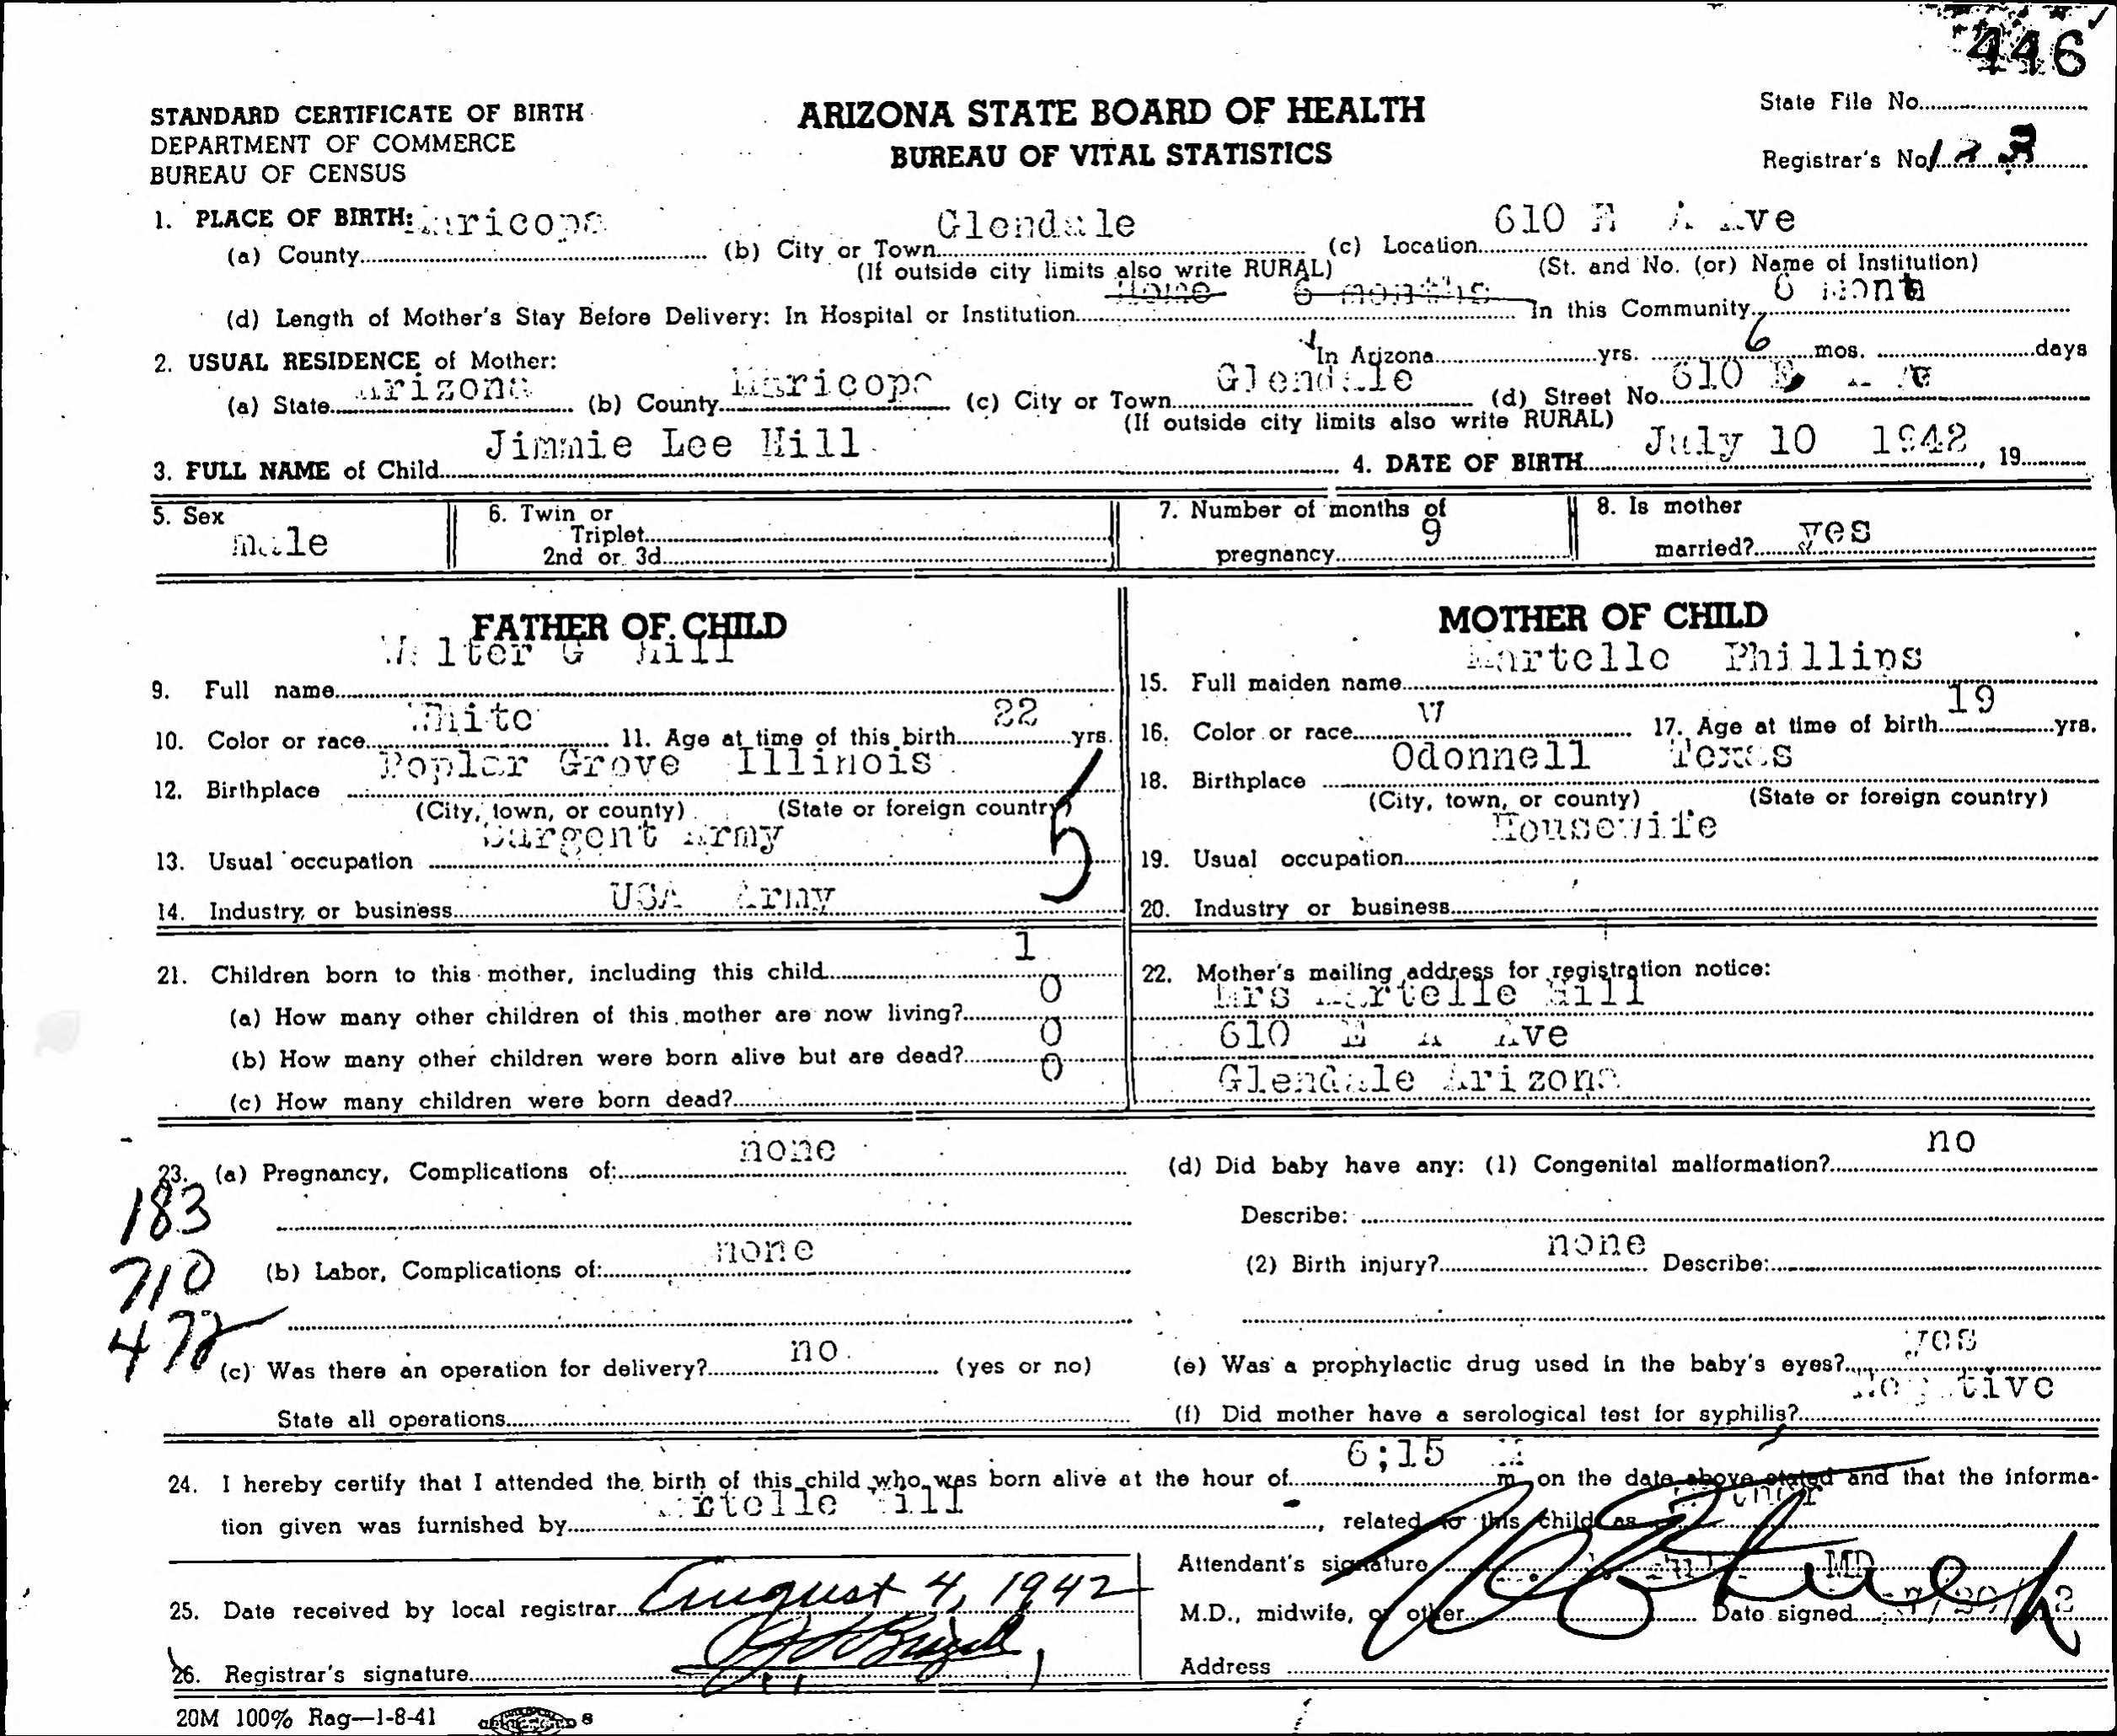 446
STANDARD CERTIFICATE OF BIRTH
DEPARTMENT OF COMMERCE
BUREAU OF CENSUS
ARIZONA STATE BOARD OF HEALTH
BUREAU OF VITAL STATISTICS
State File No.
Registrar's No.
1. PLACE OF BIRTH: Maricopa Glendale 610 E A Ave
(a) County (b) City or Town (c) Location
(If outside city limits also write RURAL) (St. and No. (or) Name of Institution)
Home 6 months 6 month
(d) Length of Mother's Stay Before Delivery: In Hospital or Institution In this Community
2. USUAL RESIDENCE of Mother: In Arizona yrs. 6 mos. days
(a) State Arizona (b) County Maricopa (c) City or Town Glendale (d) Street No. 610 E
(If outside city limits also write RURAL)
3. FULL NAME of Child Jimmie Lee Hill 4. DATE OF BIRTH July 10 1942, 19
5. Sex male
6. Twin or
Triplet
2nd or 3d
7. Number of months of
pregnancy 9
8. Is mother
married? yes
FATHER OF CHILD
9. Full name Walter G Hill
10. Color or race White 11. Age at time of this birth 22 yrs.
12. Birthplace Poplar Grove Illinois
(City, town, or county) (State or foreign country)
13. Usual occupation Surgent Army
14. Industry or business USA Army
5
MOTHER OF CHILD
15. Full maiden name Martelle Phillips
16. Color or race W 17. Age at time of birth 19 yrs.
18. Birthplace Odonnell Texas
(City, town, or county) (State or foreign country)
19. Usual occupation Housewife
20. Industry or business
21. Children born to this mother, including this child 1
(a) How many other children of this mother are now living? 0
(b) How many other children were born alive but are dead? 0
(c) How many children were born dead? 0
22. Mother's mailing address for registration notice:
Mrs Martelle Hill
610 E A Ave
Glendale Arizona
23. (a) Pregnancy, Complications of: none
183
710
(b) Labor, Complications of: none
472
(c) Was there an operation for delivery? no (yes or no)
State all operations
(d) Did baby have any: (1) Congenital malformation? no
Describe:
(2) Birth injury? none Describe:
(e) Was a prophylactic drug used in the baby's eyes? yes
(f) Did mother have a serological test for syphilis? Negative
24. I hereby certify that I attended the birth of this child who was born alive at the hour of 6;15 m. on the date above stated and that the informa-
tion given was furnished by Martelle Hill, related to this child as
Attendant's signature MD
M.D., midwife, or other Date signed
Address
25. Date received by local registrar August 4, 1942
26. Registrar's signature
20M 100% Rag—1-8-41